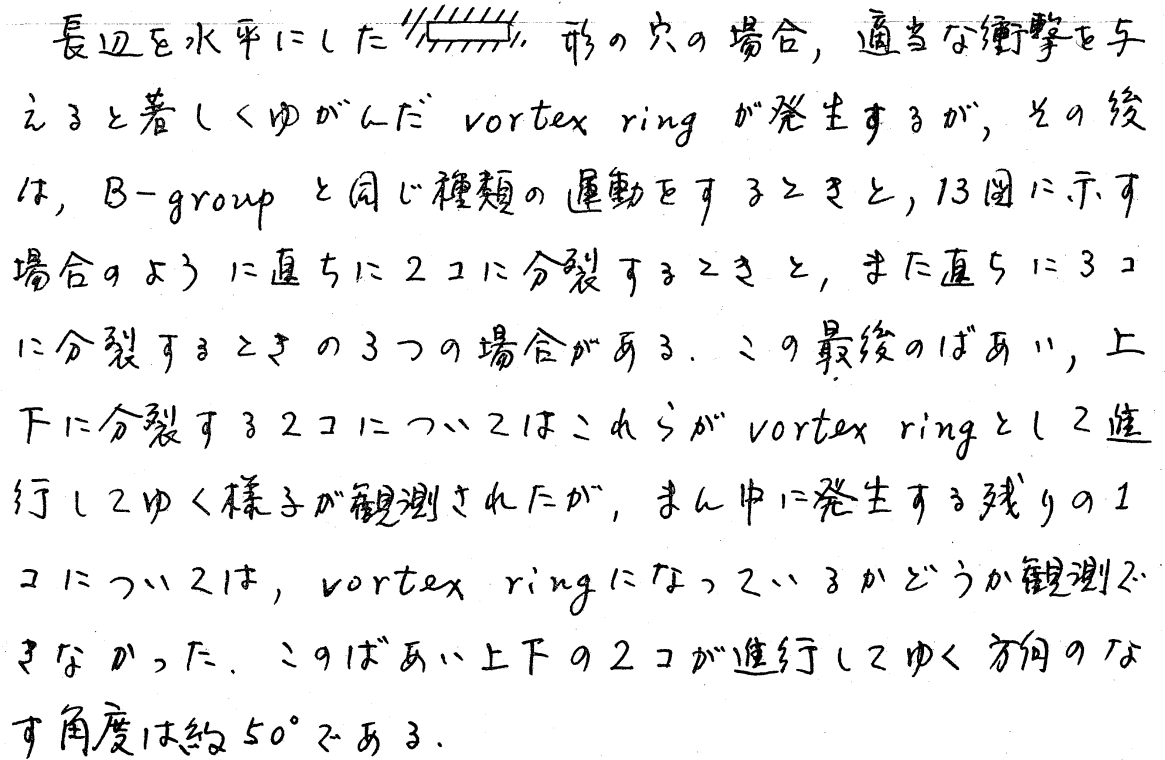 長辺を水平にした 形の穴の場合, 適当な衝撃を与
えると著しくゆがんだ vortex ring が発生するが, その後
は, B-group と同じ種類の運動をするときと, 13図に示す
場合のように直ちに2コに分裂するときと, また直ちに3コ
に分裂するときの3つの場合がある. この最後のばあい, 上
下に分裂する2コについてはこれらが vortex ringとして進
行してゆく様子が観測されたが, まん中に発生する残りの1
コについては, vortex ringになっているかどうか観測で
きなかった. このばあい上下の2コが進行してゆく方向のな
す角度は約50°である.